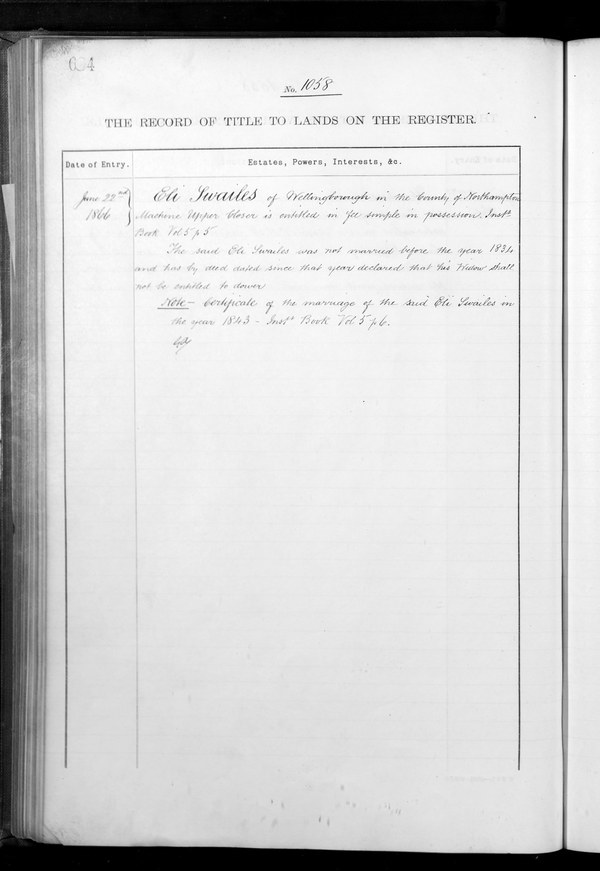 634
No. 1058
THE RECORD OF TITLE TO LANDS ON THE REGISTER.
Date of Entry.
Estates, Powers, Interests, &c.
June 22nd 1866
Eli Swailes of Wellingborough in the County of Northampton
Machine Upper Closer is entitled in fee simple in possession. Inst.s
Book Vol 5 p 5
The said Eli Swailes was not married before the year 1834
and has by deed dated since that year declared that his Widow shall
not be entitled to dower
Note – Certificate of the marriage of the said Eli Swailes in
the year 1843 – Inst.s Book Vol 5 p 6.